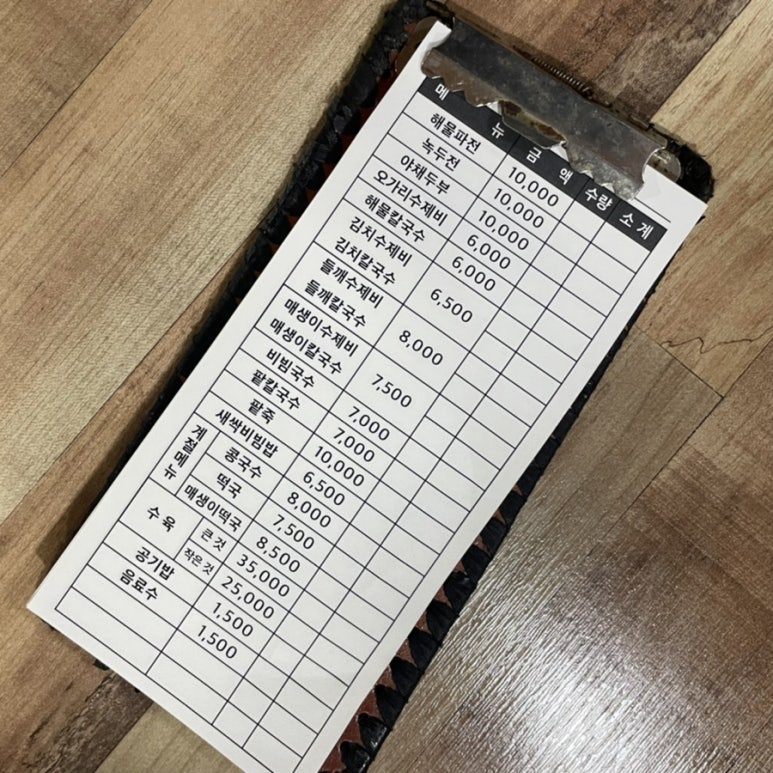 메 뉴 금 액 수량 소 계
해물파전 10,000
녹두전 10,000
야채두부 10,000
오가리수제비 6,000
해물칼국수 6,000
김치수제비 6,500
김치칼국수
들깨수제비 8,000
들깨칼국수
매생이수제비 7,500
매생이칼국수
비빔국수 7,000
팥칼국수 7,000
팥죽 10,000
새싹비빔밥 6,500
계절메뉴 콩국수 8,000
떡국 7,500
매생이떡국 8,500
수 육 큰것 35,000
작은것 25,000
공기밥 1,500
음료수 1,500